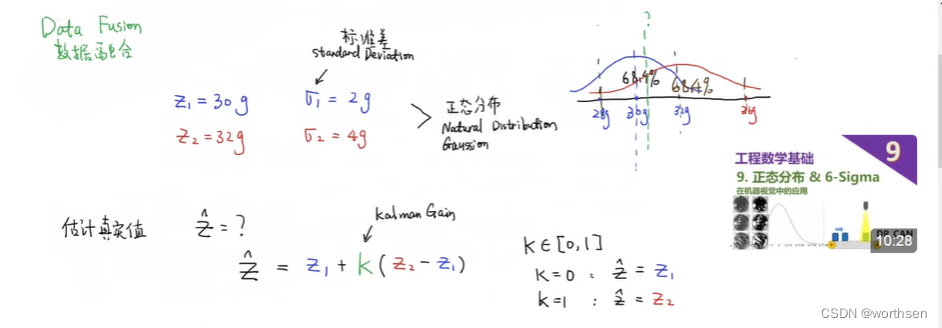 Data Fusion
数据融合
标准差
Standard Deviation
z₁=30g σ₁=2g
z₂=32g σ₂=4g
正态分布
Natural Distribution
Gaussion
?
68.4% 68.4%
28g 30g 32g 36g
工程数学基础 9
9. 正态分布 & 6-Sigma
在机器视觉中的应用
DR CAN
10:28
估计真实值 ẑ=?
Kalman Gain
ẑ = z₁ + k(z₂ - z₁)
k∈[0,1]
k=0 : ẑ = z₁
k=1 : ẑ = z₂
CSDN @worthsen